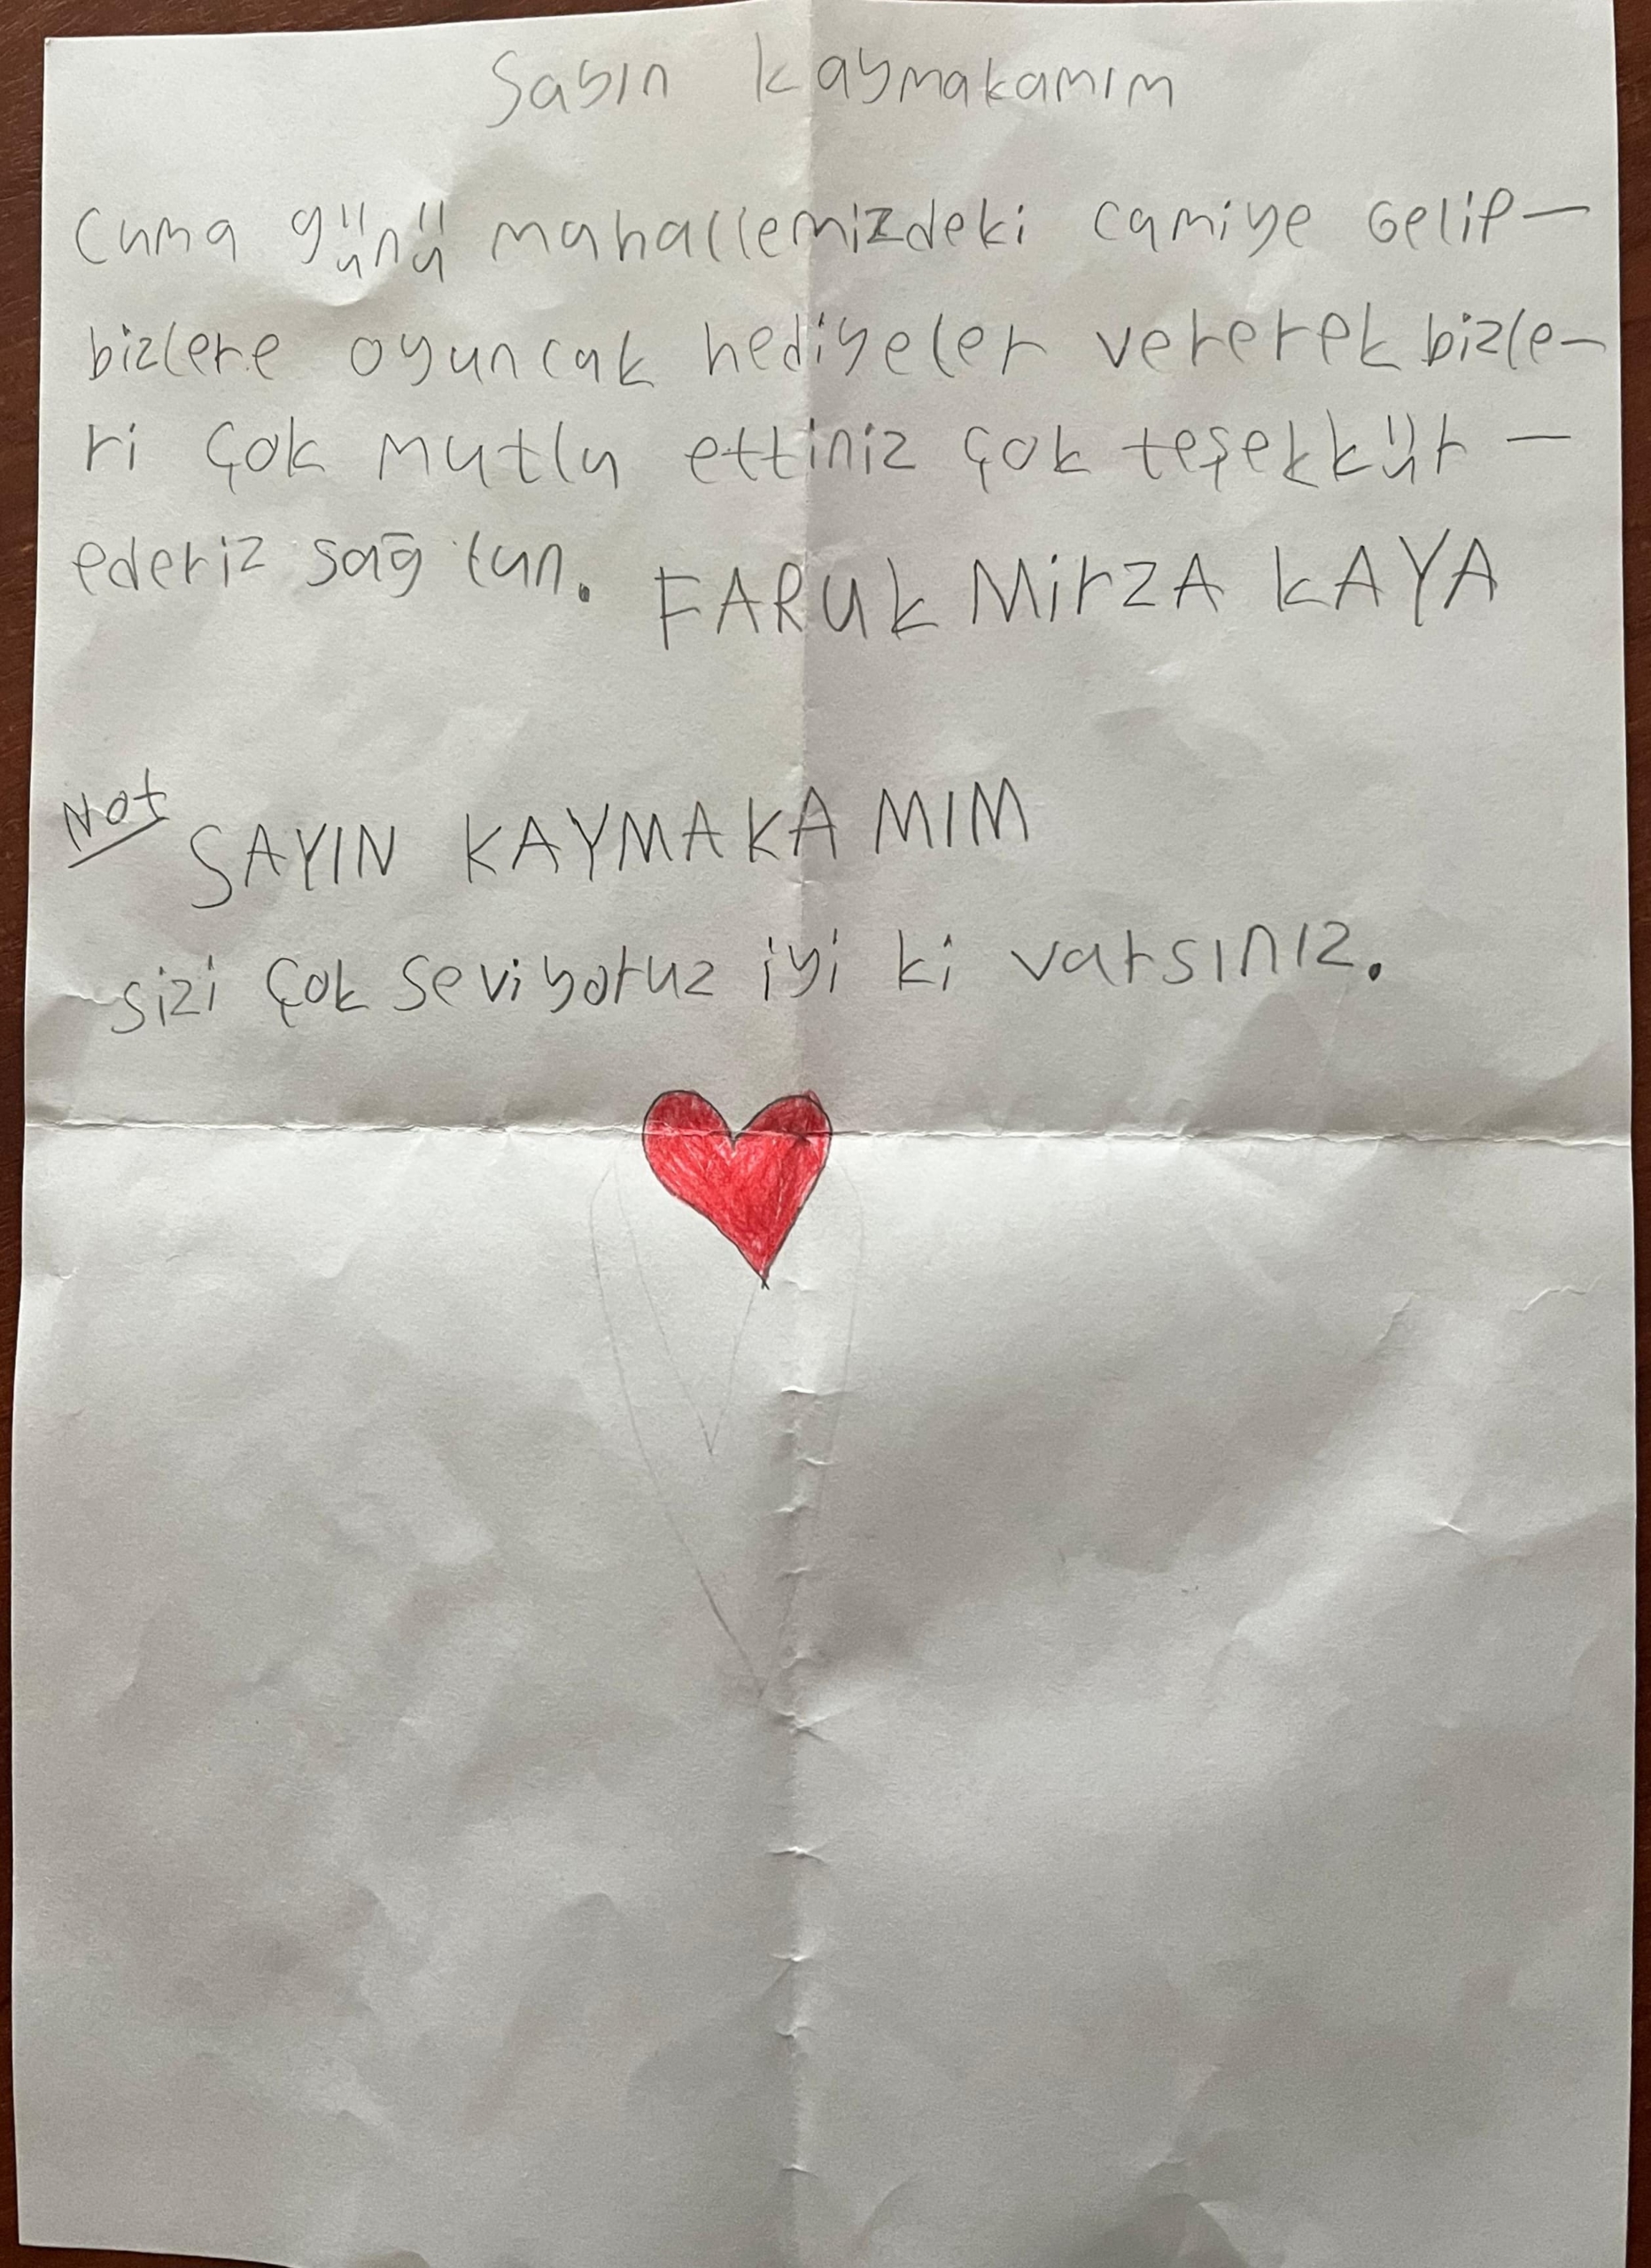 Sayın kaymakamım
Cuma günü mahallemizdeki camiye Gelip-
bizlere oyuncak hediyeler vererek bizle-
ri çok mutlu ettiniz çok teşekkür -
ederiz sağ lun. FARUk MirZA kAYA
Not SAYIN KAYMAKAMIM
sizi çok seviyoruz iyi ki varsınız.